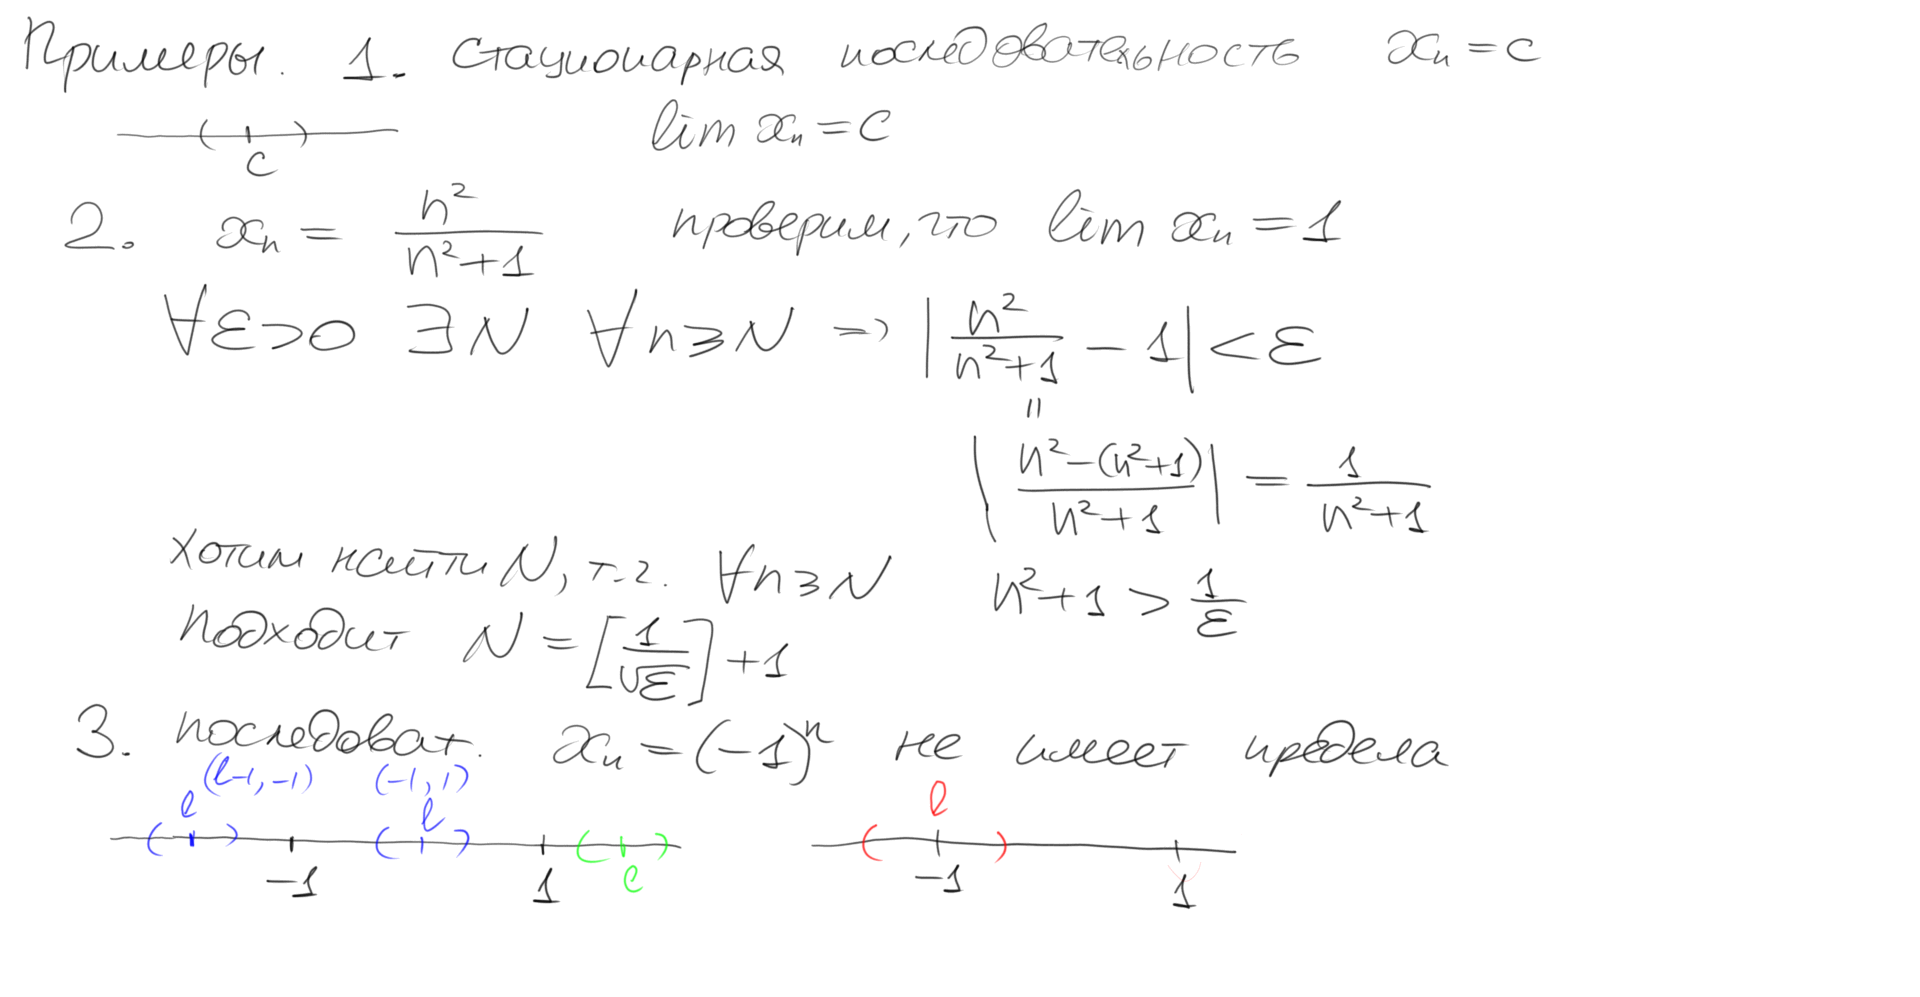 Примеры. 1. Стационарная последовательность xₙ = c
lim xₙ = c
c
2. xₙ = n²/(n²+1) проверим, что lim xₙ = 1
∀ε>0 ∃N ∀n≥N => |n²/(n²+1) − 1| < ε
||
|(n²−(n²+1))/(n²+1)| = 1/(n²+1)
хотим найти N, т.ч. ∀n≥N n²+1 > 1/ε
подходит N = [1/√ε] + 1
3. последоват. xₙ = (−1)ⁿ не имеет предела
(l−1, −1) (−1, 1)
l l l
−1 1 l −1 1